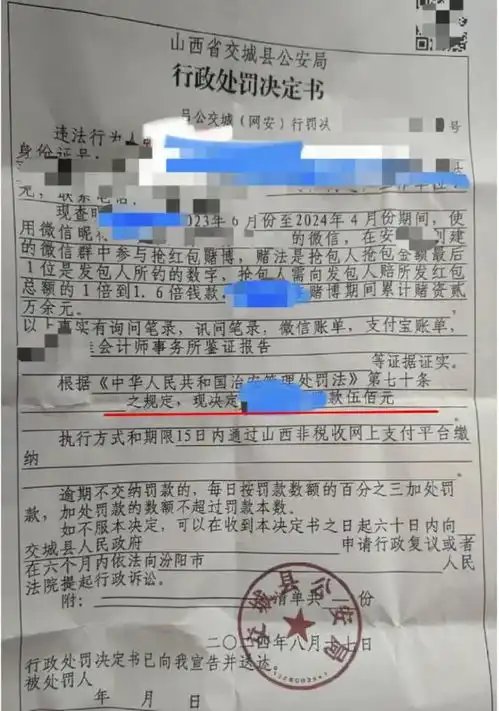 山西省交城县公安局
行政处罚决定书
公交城（网安）行罚决 号
违法行为人
身份证号：
现查明 2023年6月份至2024年4月份期间，使
用微信昵称 的微信，在安 建
的微信群中参与抢红包赌博，赌法是抢包人抢包金额最后
1位是发包人所钓的数字，抢包人需向发包人赔所发红包
总额的1倍到1.6倍钱款。 赌博期间累计赌资贰
万余元。
以上事实有询问笔录，讯问笔录，微信账单，支付宝账单，
会计师事务所鉴证报告
等证据证实。
根据《中华人民共和国治安管理处罚法》第七十条
之规定，现决定 款伍佰元
执行方式和期限15日内通过山西非税收网上支付平台缴
纳
逾期不交纳罚款的，每日按罚款数额的百分之三加处罚
款，加处罚款的数额不超过罚款本数。
如不服本决定，可以在收到本决定书之日起六十日内向
交城县人民政府 申请行政复议或者
在六个月内依法向汾阳市 人民
法院提起行政诉讼。
附： 清单共 份
交城县公安局
二〇二四年八月 七日
行政处罚决定书已向我宣告并送达。
被处罚人
年 月 日